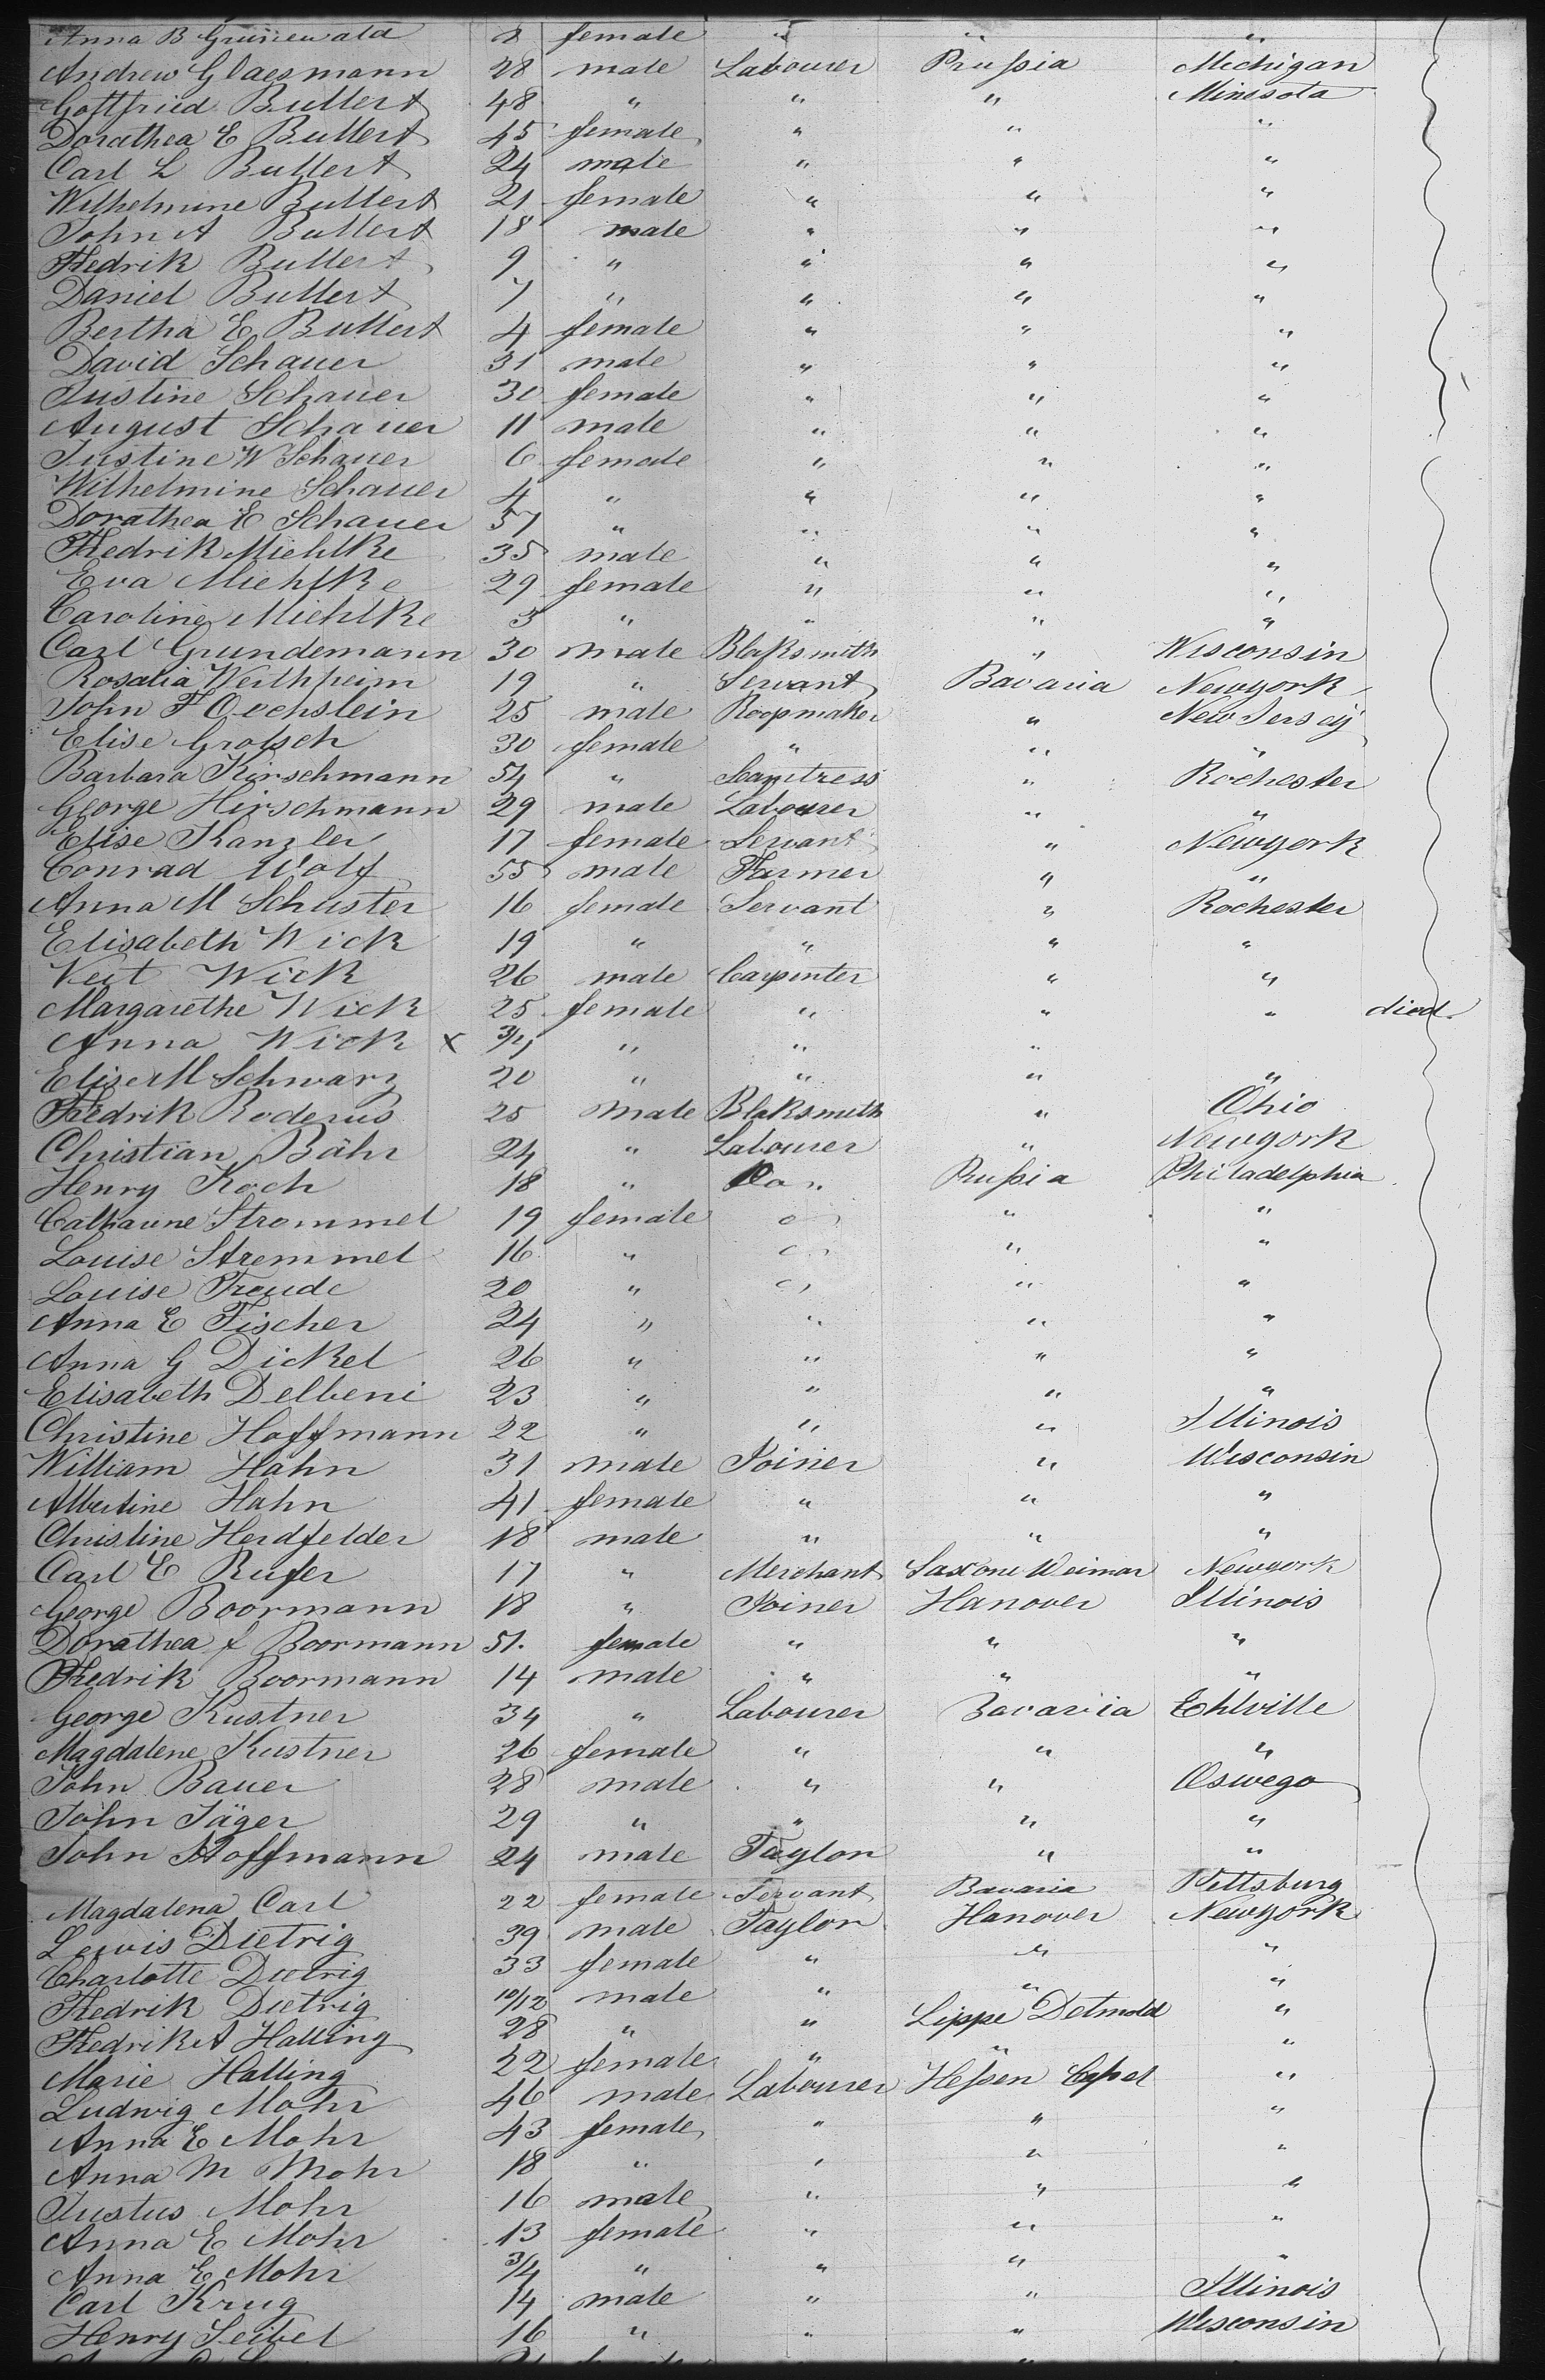 Anna B Grünewald 2 female " " "
Andrew Glaesmann 28 male Labourer Prußia Michigan
Gottfried Buttert 48 " " " Minesota
Dorathea E Buttert 45 female " " "
Carl L Buttert 24 male " " "
Wilhelmine Buttert 21 female " " "
John A Buttert 18 male " " "
Fredrik Buttert 9 " " " "
Daniel Buttert 7 " " " "
Bertha E Buttert 4 female " " "
David Schauer 31 male " " "
Justine Schauer 30 female " " "
August Schauer 11 male " " "
Justine W Schauer 6 female " " "
Wilhelmine Schauer 4 " " " "
Dorathea E Schauer 57 " " " "
Fredrik Miehlke 35 male " " "
Eva Miehlke 29 female " " "
Caroline Miehlke 3 " " " "
Carl Grundemann 30 male Blaksmith " Wisconsin
Rosalia Werthheim 19 " Servant Bavaria Newyork
John F Oechslein 25 male Roopmaker " New Jersey
Elise Grotsch 30 female " " "
Barbara Hirschmann 54 " Samtress " Rochester
George Hirschmann 29 male Labourer " "
Elise Kanzler 17 female Servant " Newyork
Conrad Wolf 55 male Farmer " "
Anna M Schuster 16 female Servant " Rochester
Elisabeth Wick 19 " " " "
Veit Wick 26 male Carpinter " "
Margarethe Wick 25 female " " " died
Anna Wick x 3/4 " " "
Elise M Schwarz 20 " " " "
Fredrik Roderus 25 male Blaksmith " Ohio
Christian Bähr 24 " Labourer " Newyork
Henry Koch 18 " Do " Prußia Philadelphia
Catharine Strommel 19 female " " "
Louise Stremmel 16 " " " "
Louise Freude 20 " " " "
Anna E Fischer 24 " " " "
Anna G Dickel 26 " " " "
Elisabeth Delbeni 23 " " " "
Christine Hoffmann 22 " " " Illinois
William Hahn 31 male Joiner " Wisconsin
Albertine Hahn 41 female " " "
Christine Herdfelder 18 male " " "
Carl E Rufer 17 " Merchant Saxone Weimar Newyork
George Boormann 18 " Joiner Hanover Illinois
Dorathea f Boormann 51. female " " "
Fredrik Boormann 14 male " " "
George Kustner 34 " Labourer Bavaria Ehlville
Magdalene Kustner 26 female " " "
John Bauer 28 male " " Oswego
John Jäger 29 " " " "
John Hoffmann 24 male Taylor " "
Magdalena Carl 22 female Servant Bavaria Pittsburg
Lewis Dietrig 39 male Taylor Hanover Newyork
Charlotte Dietrig 33 female " " "
Fredrik Dietrig 10/12 male " " "
Fredrik A Halling 28 " " Lippe Detmold "
Marie Halling 22 female " " "
Ludwig Mohr 46 male Labourer Heßen Caßel "
Anna E Mohr 43 female " " "
Anna M Mohr 18 " " " "
Justus Mohr 16 male " " "
Anna E Mohr 13 female " " "
Anna E Mohr 3/4 " " " "
Carl Krug 14 male " " Illinois
Henry Seibel 16 " " " Wisconsin